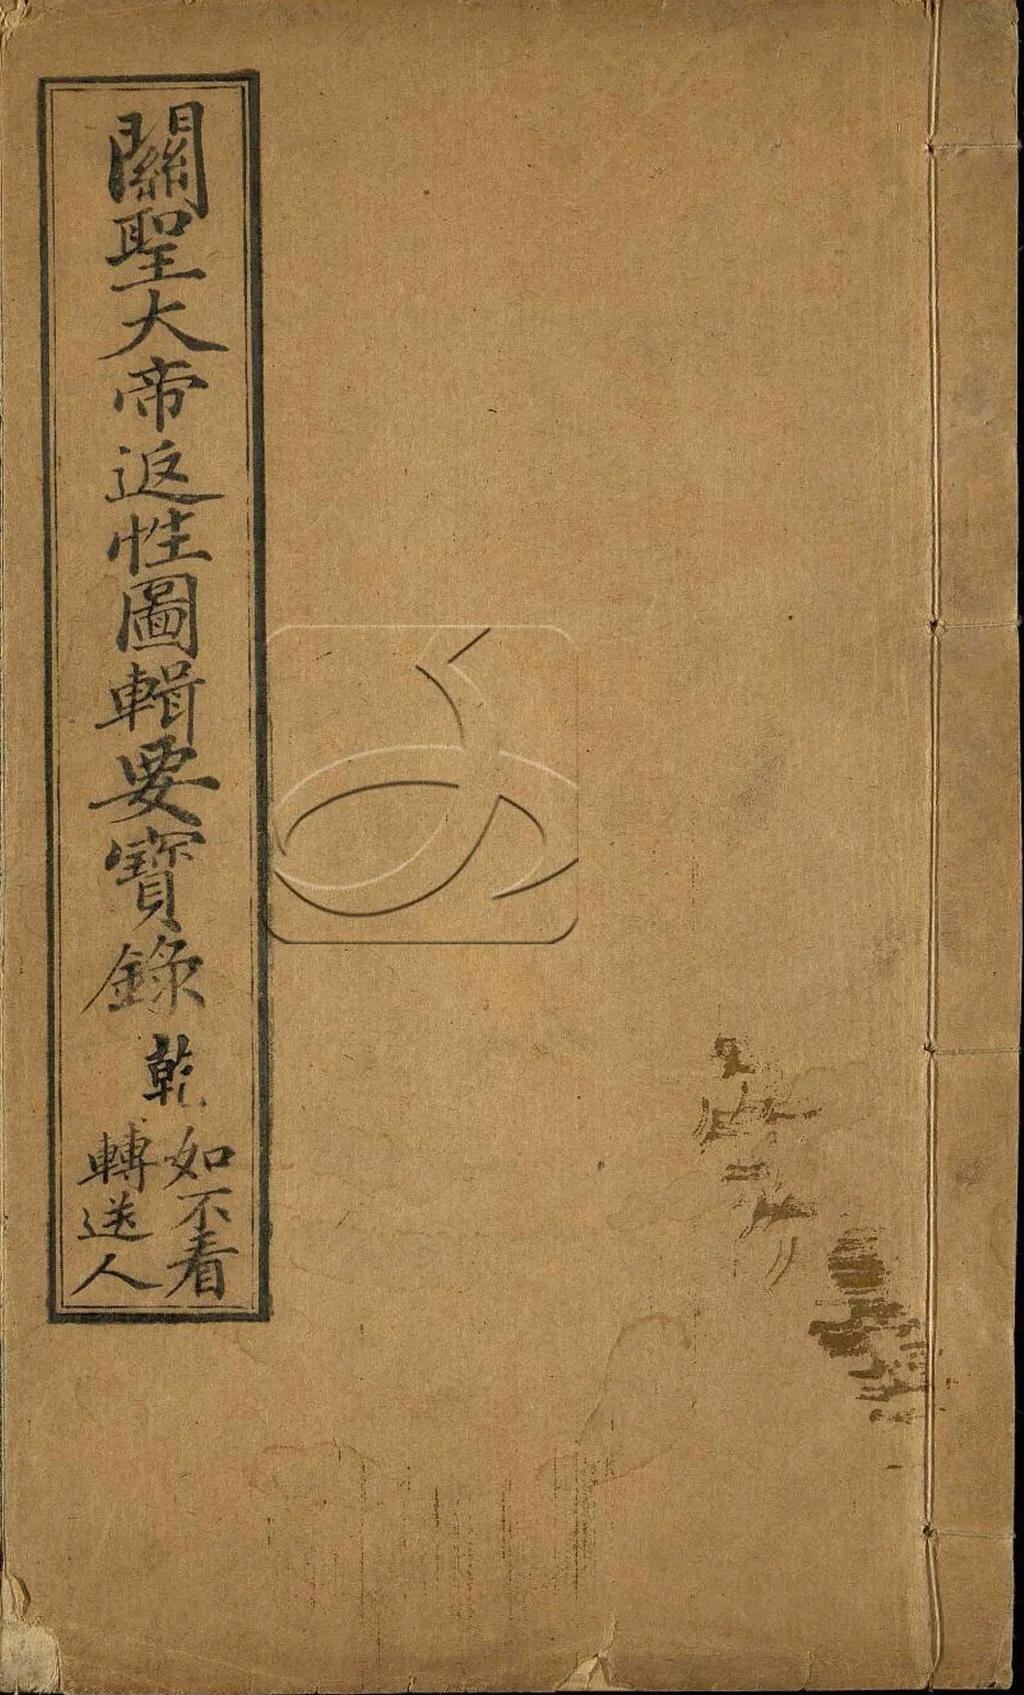 關聖大帝返性圖輯要寳錄
乾
如不看
轉送人